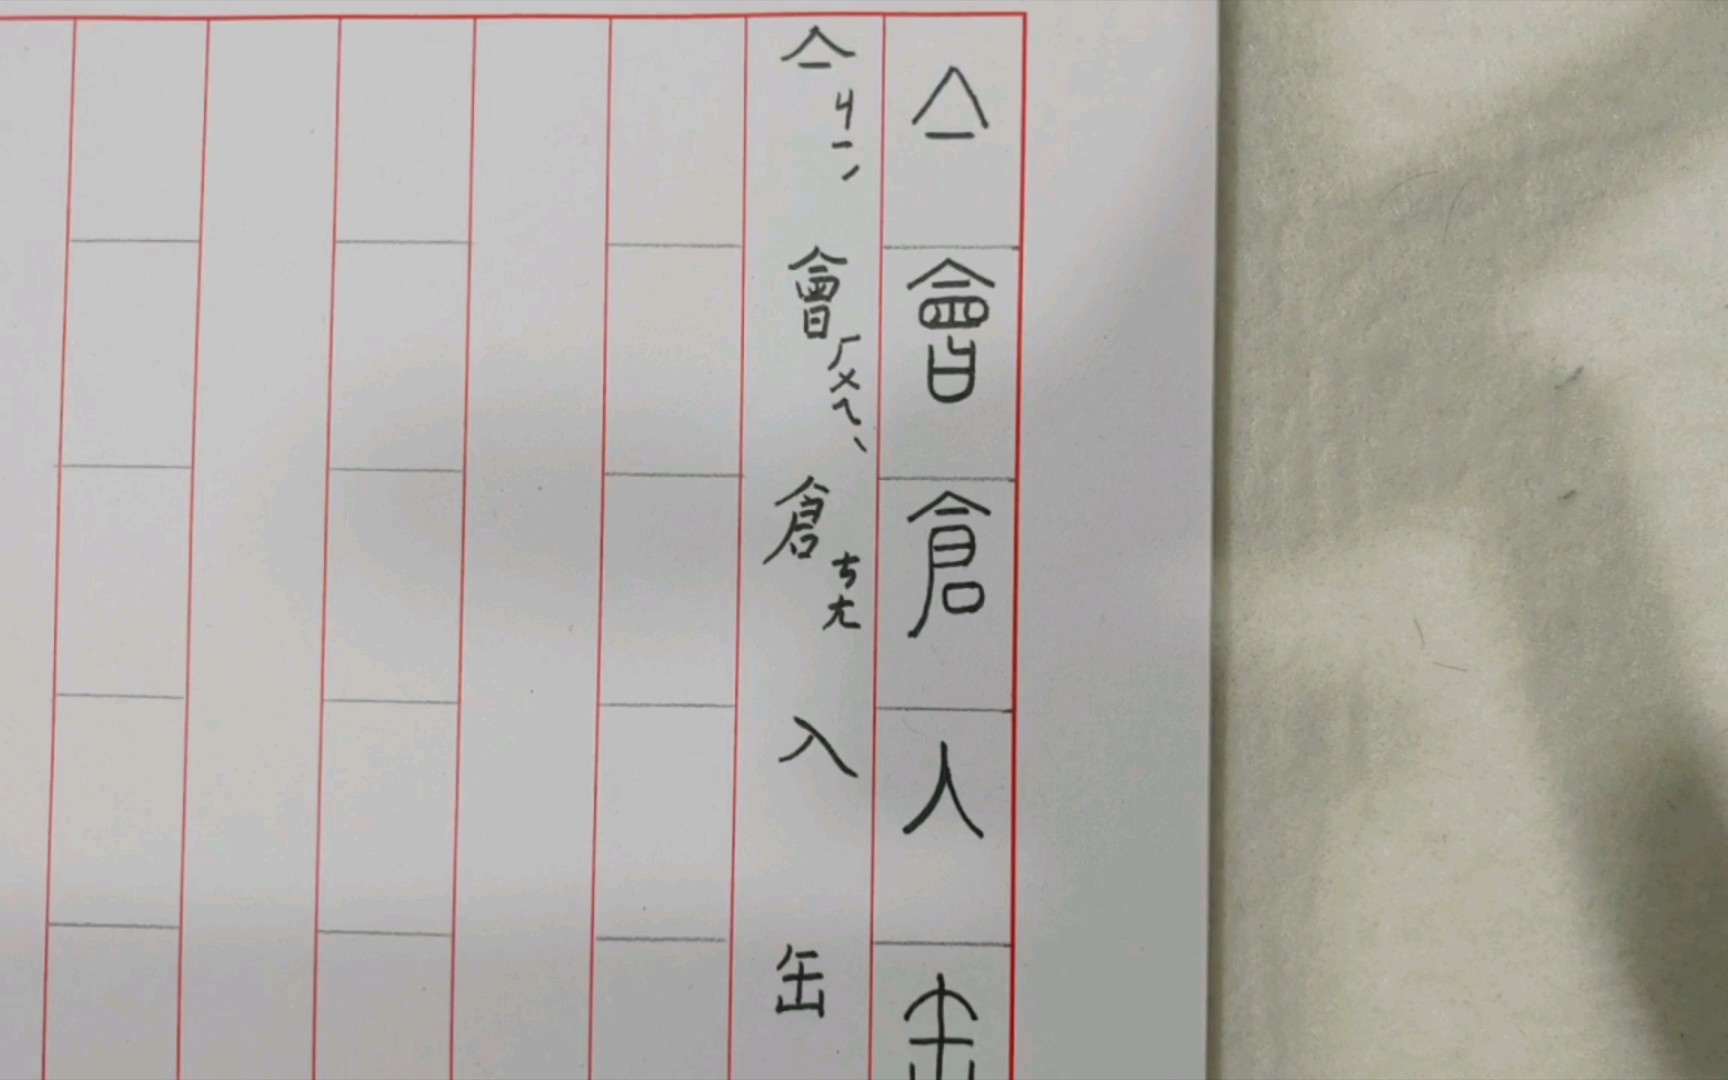 亼會倉人缶
亼ㄐㄧˊ會ㄏㄨㄟˋ倉ㄘㄤ入缶